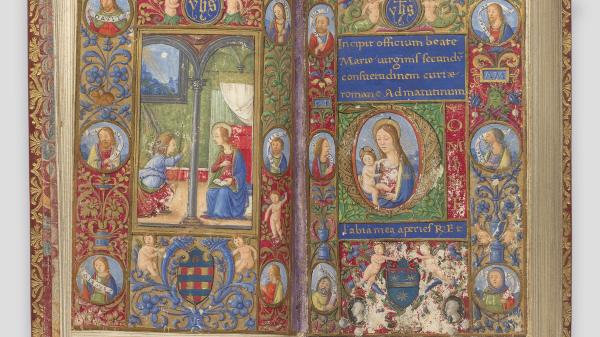 yhs
yhs
Incipit officium beate
Marie uirginis secundū
consuetudinem curie
romane Ad matutinum
O
Labia mea aperies R. Et